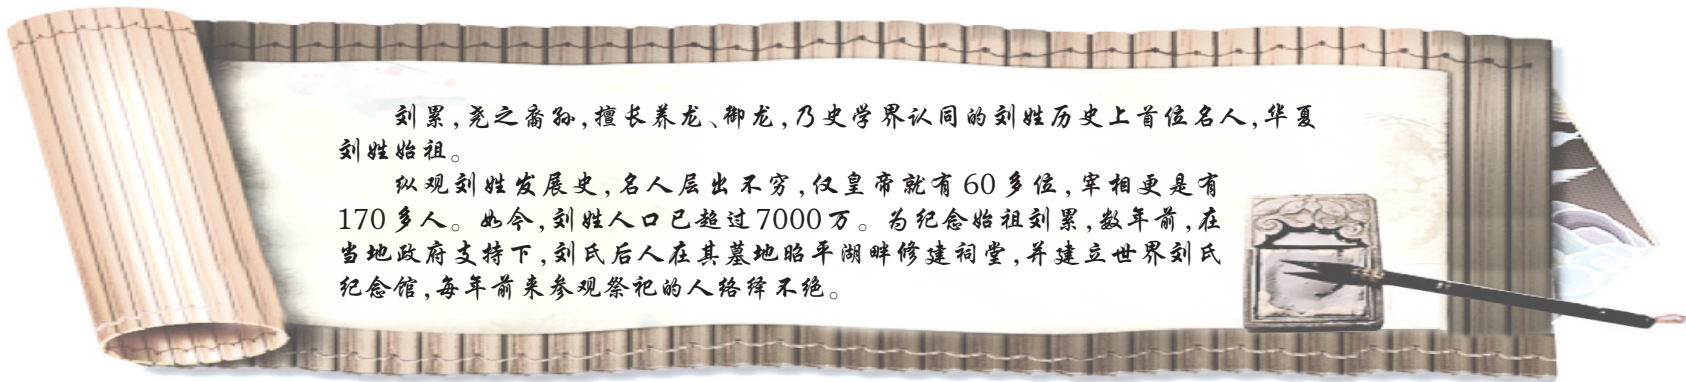 刘累,尧之裔孙,擅长养龙、御龙,乃史学界认同的刘姓历史上首位名人,华夏
刘姓始祖。
纵观刘姓发展史,名人层出不穷,仅皇帝就有60多位,宰相更是有
170多人。如今,刘姓人口已超过7000万。为纪念始祖刘累,数年前,在
当地政府支持下,刘氏后人在其墓地昭平湖畔修建祠堂,并建立世界刘氏
纪念馆,每年前来参观祭祀的人络绎不绝。